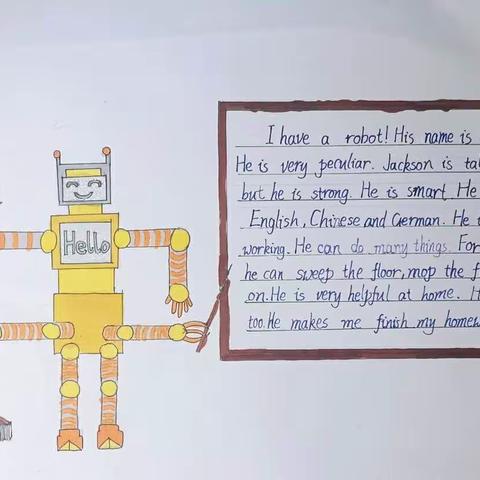 Hello
I have a robot! His name is
He is very peculiar. Jackson is
but he is strong. He is smart. He
English, Chinese and German. He
working. He can do many things. For
he can sweep the floor, mop the
on. He is very helpful at home.
too. He makes me finish my